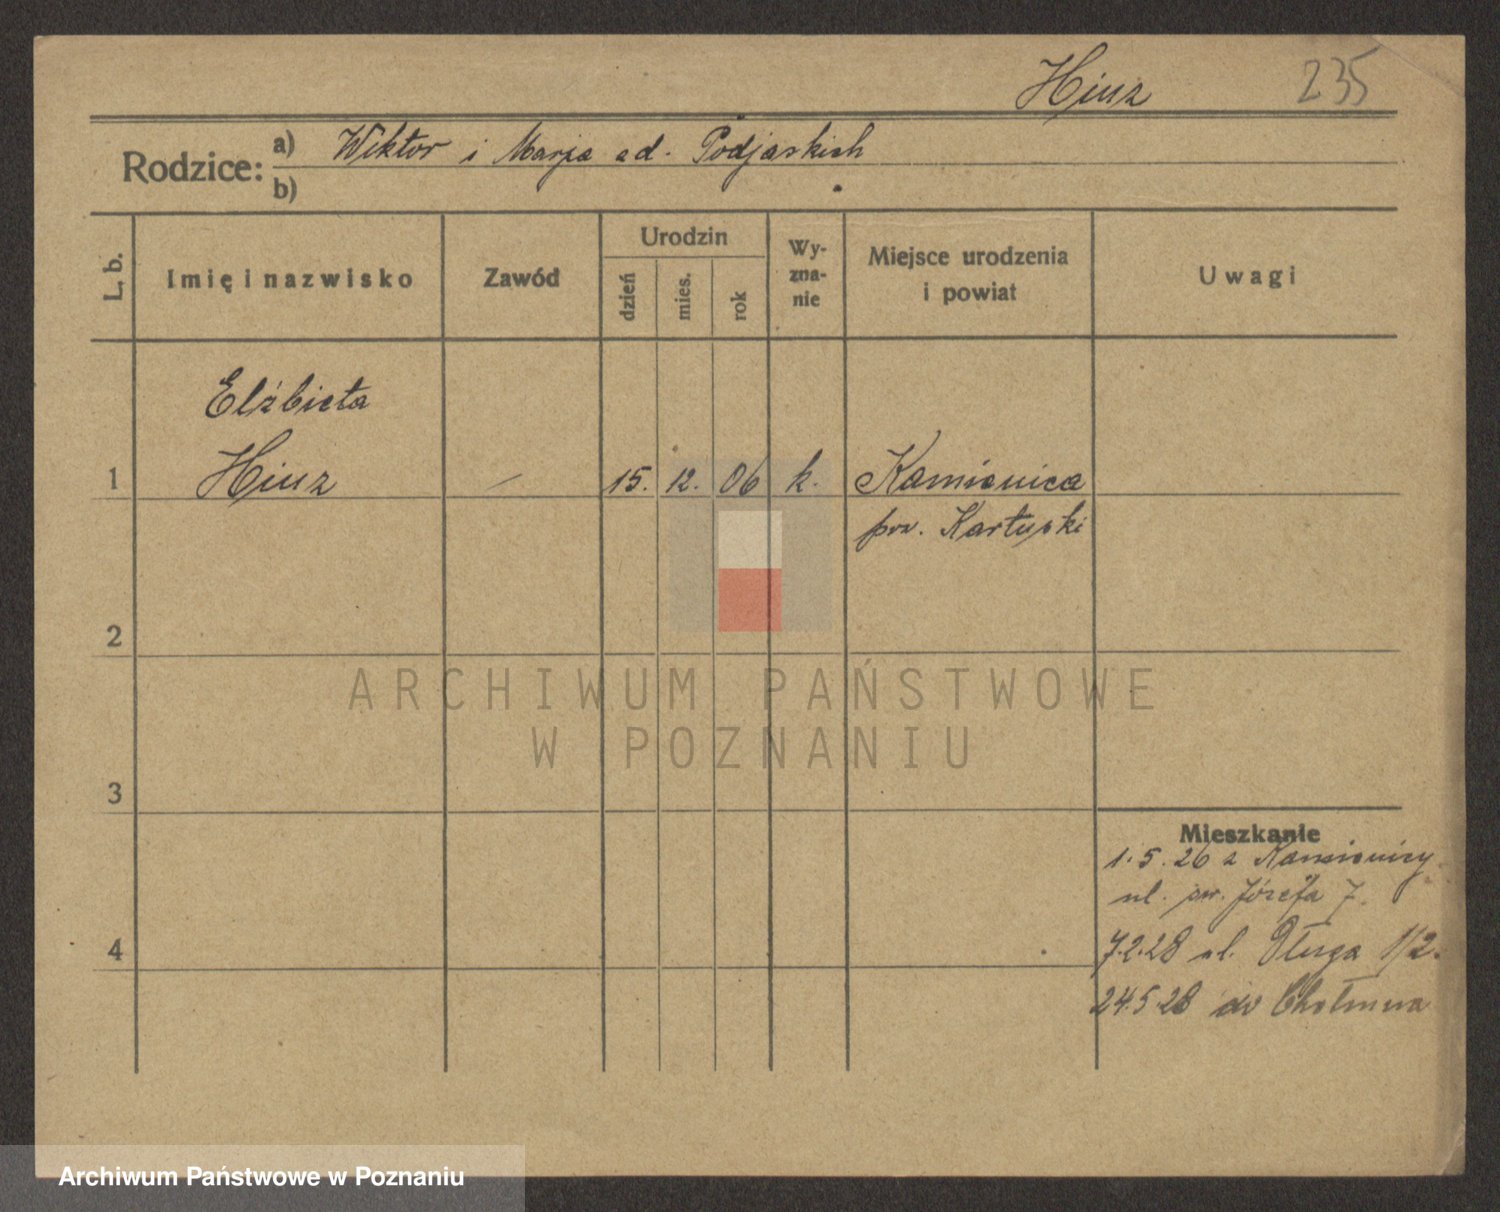 Hinz 235
Rodzice: a) Wiktor i Marja od. Podjaskich
b)
L. b.
Imię i nazwisko
Zawód
Urodzin
dzień
mies.
rok
Wy-
zna-
nie
Miejsce urodzenia
i powiat
Uwagi
Elżbieta
1 Hinz — 15. 12. 06 k. Kamienica
pow. Kartuski
2
ARCHIWUM PAŃSTWOWE
W POZNANIU
3
Mieszkanie
1.5.26 z Kamienicy
ul. św. Józefa 7.
4 7.2.28 ul. Długa 1/2.
24.5.28 do Chełmna
Archiwum Państwowe w Poznaniu